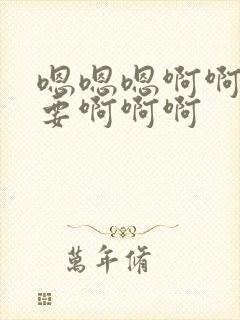 嗯嗯嗯啊啊
要啊啊啊
萬年脩